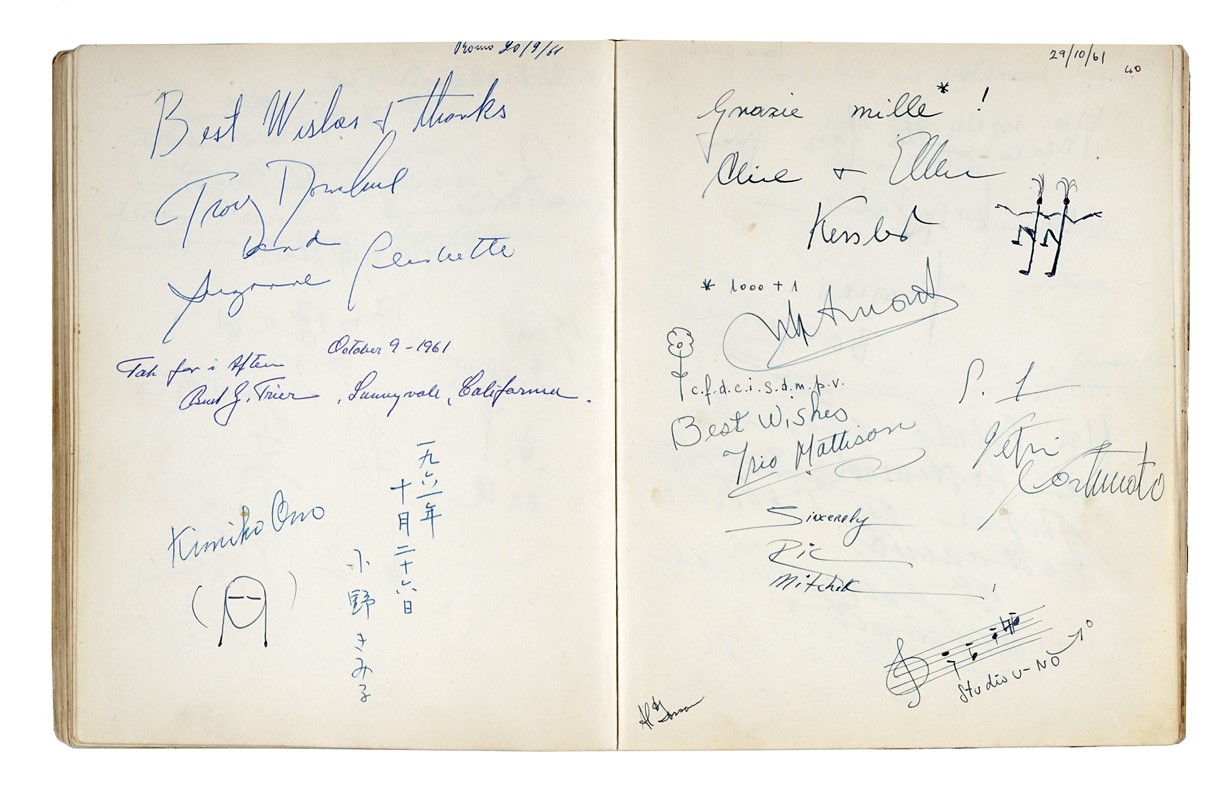 Roma 20/9/61
Best Wishes + thanks
Troy Donahue
and
Suzanne Pleshette
October 9 - 1961
Tak for i Aften
Trier, Sunnyvale, California.
一九六一年
十月二十六日
Kimiko Ono
小野きみ子
29/10/61
40
Grazie mille* !
Alice + Ellen
Kessler
* 1000 + 1
c.f.d.c.i.s.d.m.p.v.
Best Wishes
Trio Mattison
Sincerely
Ric
Mitchell
Studio U-NO